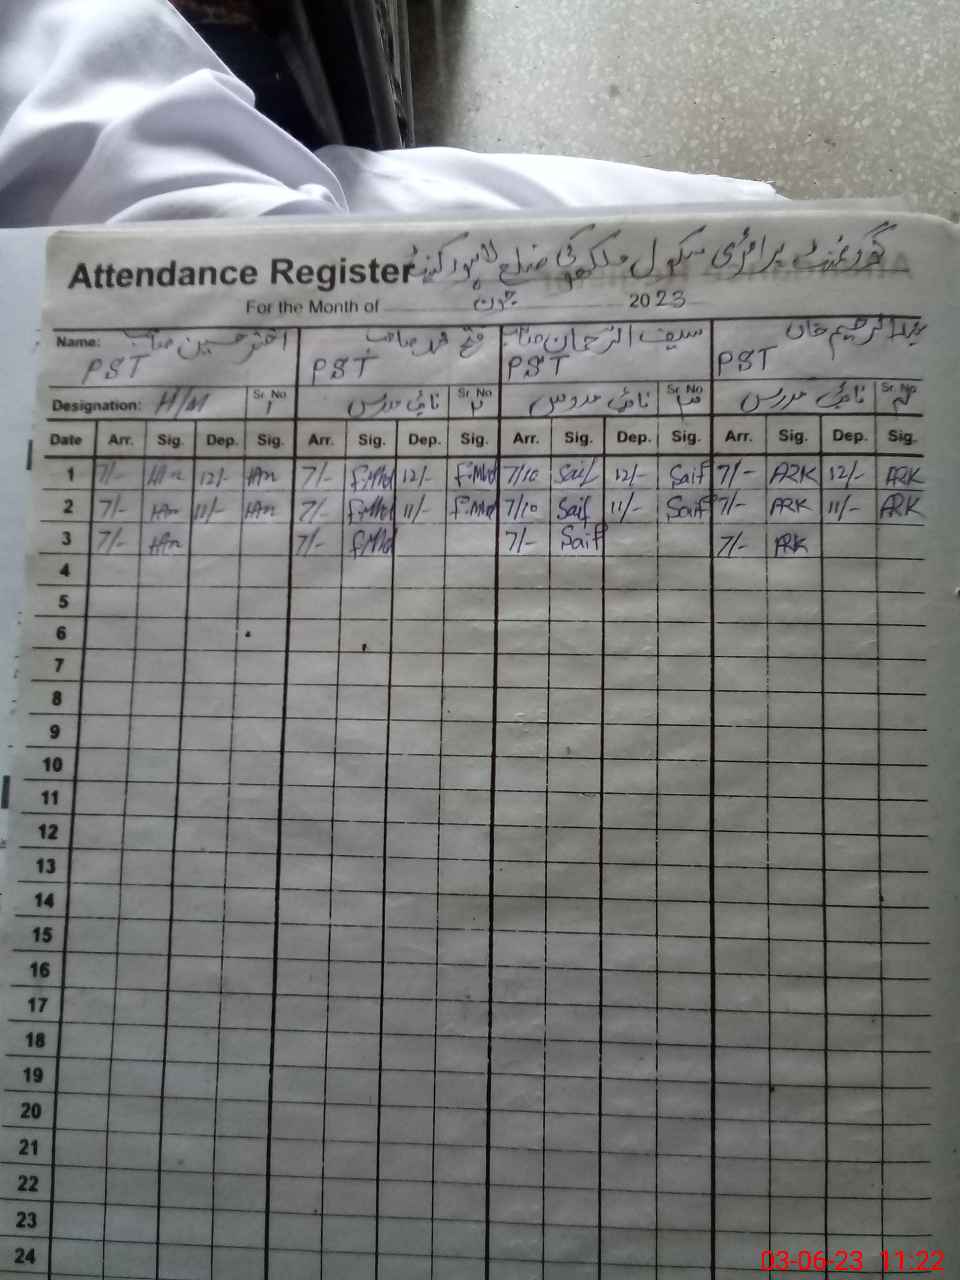 Attendance Register گورنمنٹ پرائمری سکول ضلع
For the Month of جون 2023
Name: اختر حسین صاحب فتح محمد صاحب سیف الرحمان صاحب عبدالرحیم خان
PST PST PST PST
Designation: H/M Sr. No ۱ نائب مدرس Sr. No ۲ نائب مدرس Sr. No ۳ نائب مدرس Sr. No ۴
Date Arr. Sig. Dep. Sig. Arr. Sig. Dep. Sig. Arr. Sig. Dep. Sig. Arr. Sig. Dep. Sig.
1 7/- 12/- 7/- F.Mhd 12/- F.Mhd 7/10 Saif 12/- Saif 7/- ARK 12/- ARK
2 7/- 11/- 7/- F.Mhd 11/- F.Mhd 7/10 Saif 11/- Saif 7/- ARK 11/- ARK
3 7/- 7/- F.Mhd 7/- Saif 7/- ARK
4
5
6
7
8
9
10
11
12
13
14
15
16
17
18
19
20
21
22
23
24
03-06-23 11:22